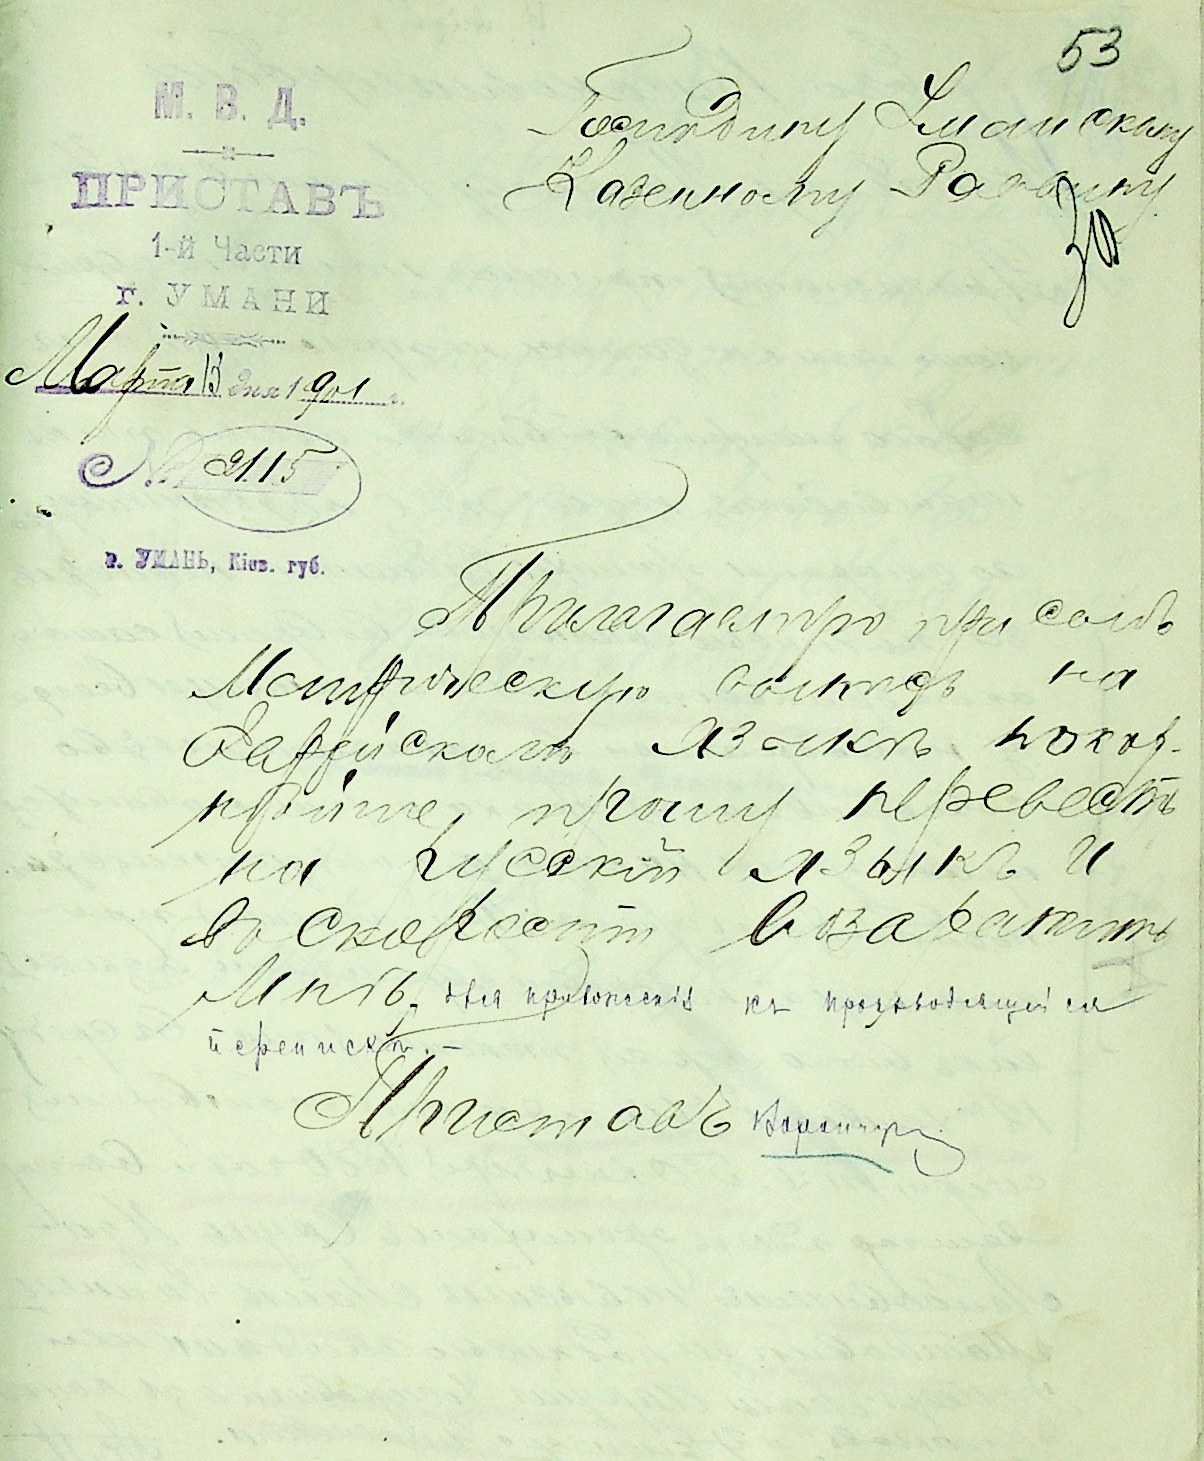 53
М. В. Д.
ПРИСТАВЪ
1-й Части
г. УМАНИ
Марта 13 дня 1901 г.
№ 2115
г. УМАНЬ, Кіев. губ.
Господину Уманскому
Казенному Раввину
Прилагаемую при семъ
Метрическую выпись на
Еврейскомъ языкѣ, покор-
нѣйше прошу перевесть
на русскій языкъ и
въ скорости возвратить
мнѣ, для приложенія къ производящейся
перепискѣ. –
Приставъ